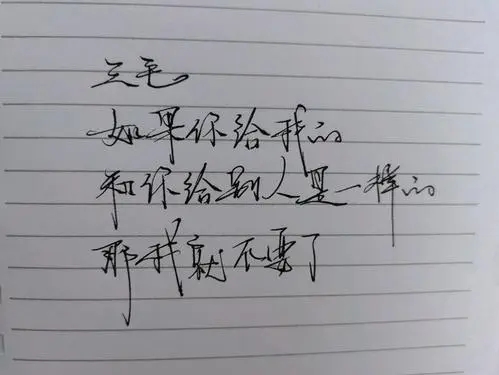 三毛
如果你给我的
和你给别人是一样的
那我就不要了